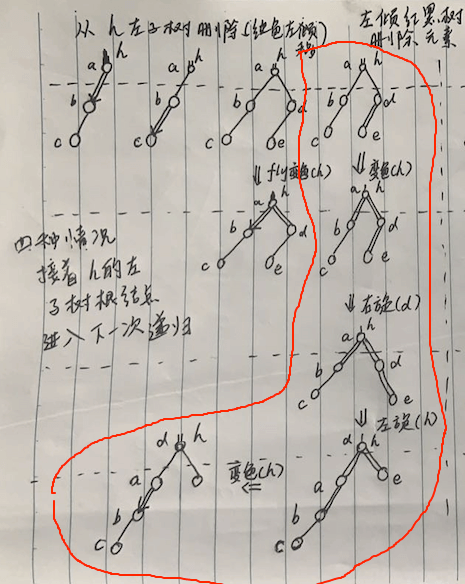 从 h 左子树删除(红色左倾
移)
左倾红黑树
删除元素
a h
b
c
a h
b
c
a h
b d
c e
a h
b d
c e
⇓ fly变色(h)
⇓ 变色(h)
a h
b d
c e
a h
b d
c e
四种情况
接着 h 的左
子树根结点
进入下一次递归
⇓ 右旋(d)
a h
b d
c e
⇓ 左旋(h)
d h
a e
b
c
变色(h)
⇐
d h
a
b
c